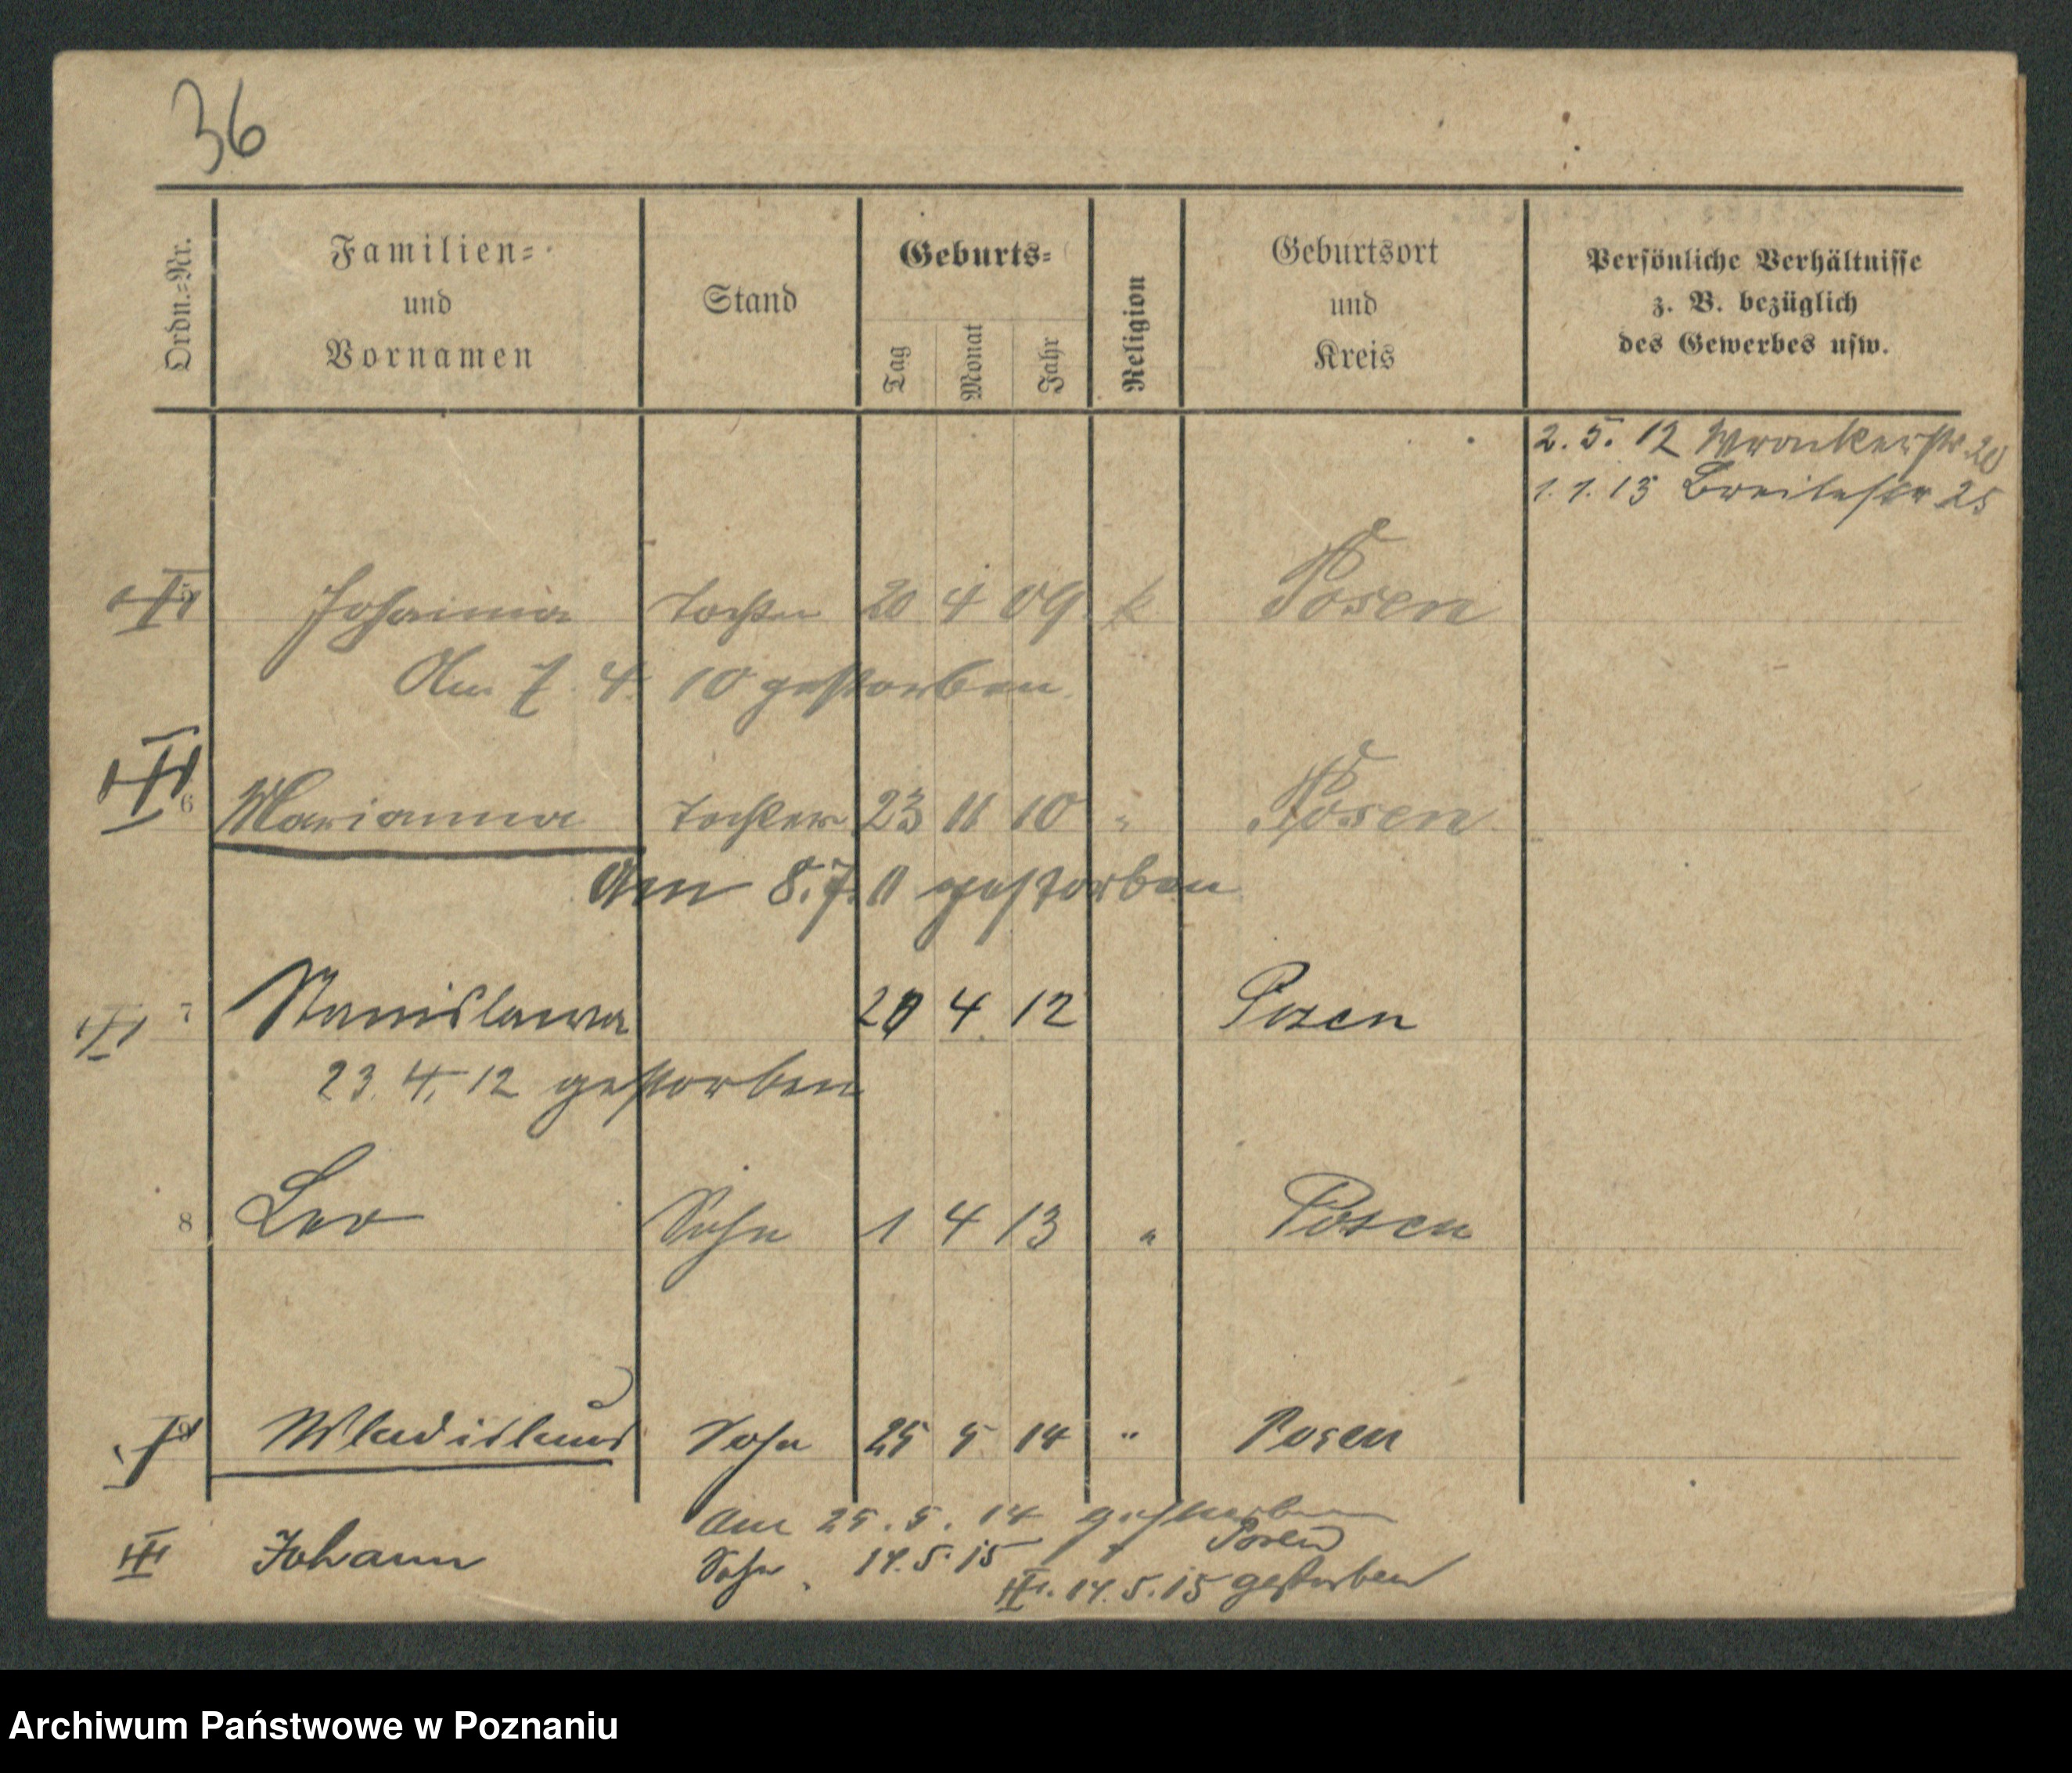 36
Ordn.=Nr.
Familien=
und
Vornamen
Stand
Geburts=
Tag
Monat
Jahr
Religion
Geburtsort
und
Kreis
Persönliche Verhältnisse
z. B. bezüglich
des Gewerbes usw.
2. 5. 12 Wronkerstr. 20
1. 1. 13 Breitestr 25
Johanna Tochter 20 4 09 k Posen
Am 7. 4. 10 gestorben
6 Marianna Tochter 23 11 10 " Posen
Am 8. 7. 11 gestorben
7 Stanislawa 20 4 12 Posen
23. 4. 12 gestorben
8 Leo Sohn 1 4 13 " Posen
Wladislaus Sohn 25 5 14 " Posen
Am 25. 5. 14 gestorben
Johann Sohn 14. 5. 15 Posen
14. 5. 15 gestorben
Archiwum Państwowe w Poznaniu